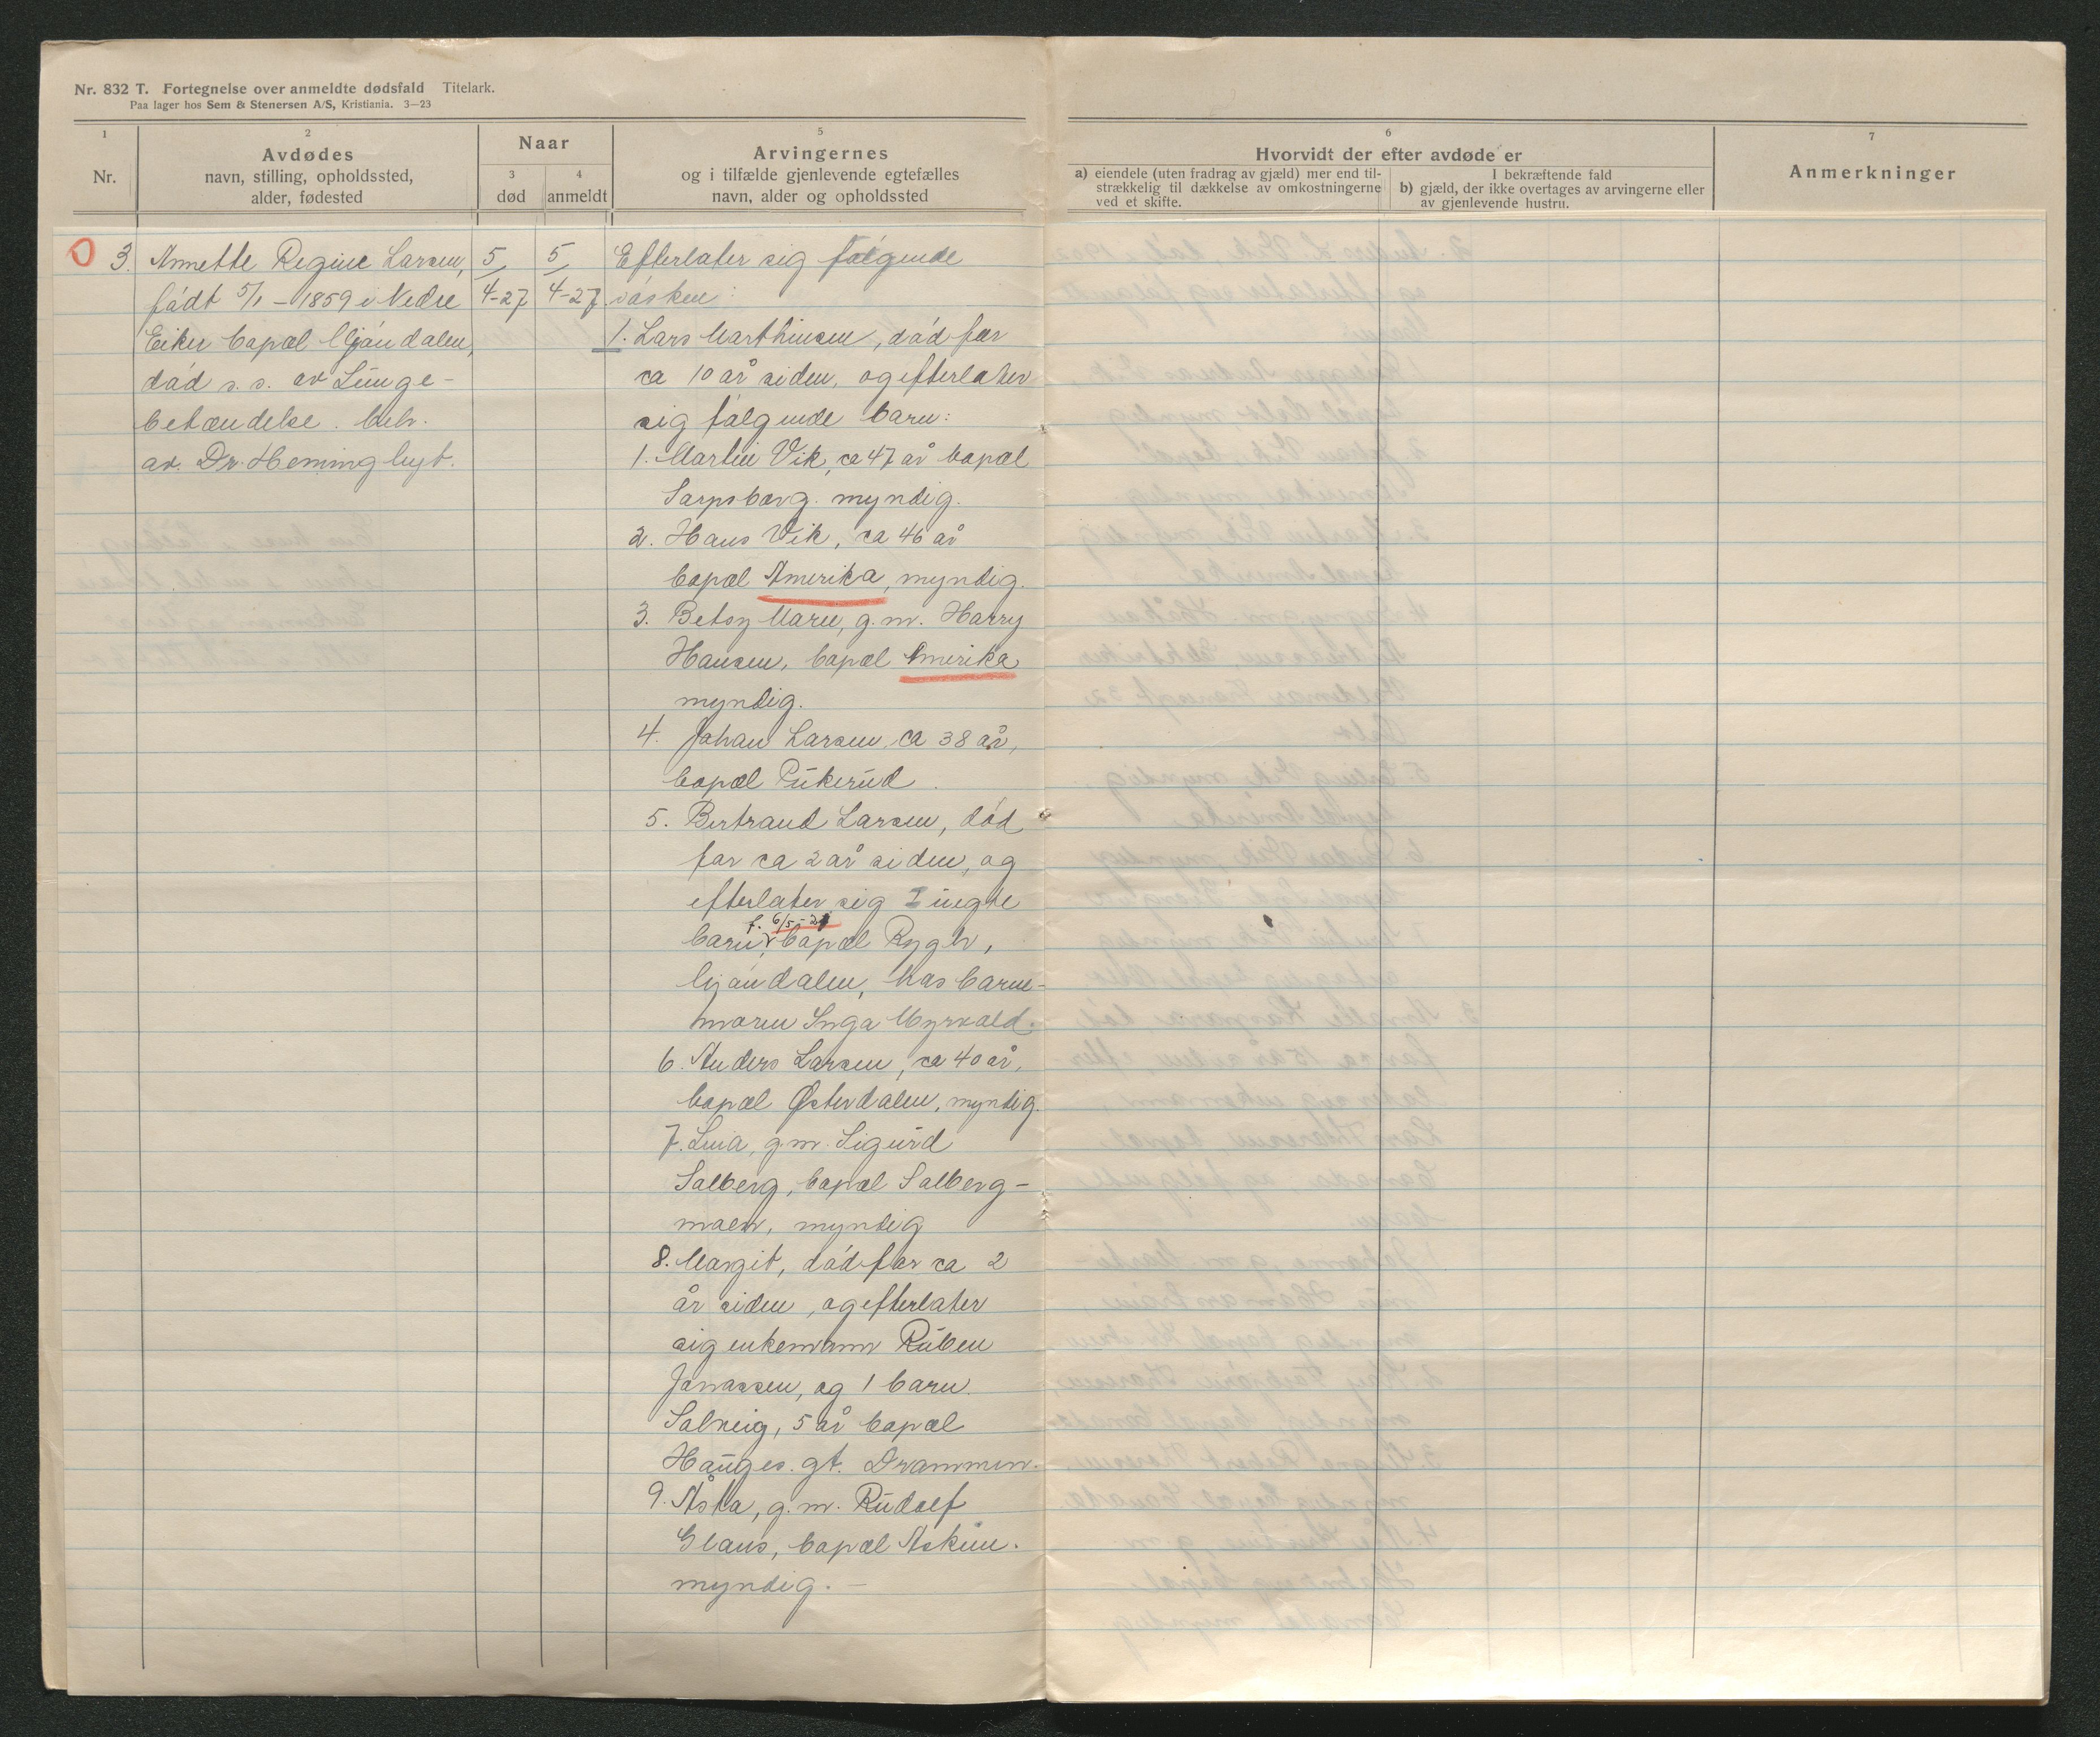 Nr. 832 T. Fortegnelse over anmeldte dødsfald Titelark.
Paa lager hos Sem & Stenersen A/S, Kristiania. 3—23
1
Nr.
2
Avdødes
navn, stilling, opholdssted,
alder, fødested
Naar
3
død
4
anmeldt
5
Arvingernes
og i tilfælde gjenlevende egtefælles
navn, alder og opholdssted
6
Hvorvidt der efter avdøde er
a) eiendele (uten fradrag av gjæld) mer end til-
strækkelig til dækkelse av omkostningerne
ved et skifte.
I bekræftende fald
b) gjæld, der ikke overtages av arvingerne eller
av gjenlevende hustru.
7
Anmerkninger
3. Annette Regine Larsen,
født 5/1 – 1859 i Nedre
Eiker bopæl Mjøndalen,
død s. s. av Lunge-
betændelse. beh.
av. Dr. Heming lyst.
5/4-27
5/4-27
Efterlater sig følgende
søsken:
1. Lars Marthinsen, død for
ca 10 år siden, og efterlater
sig følgende barn:
1. Martin Vik, ca 47 år bopæl
Sarpsborg. myndig.
2. Hans Vik, ca 46 år
bopæl Amerika, myndig.
3. Betsy Marie, g.m. Harry
Hansen, bopæl Amerika
myndig.
4. Johan Larsen, ca 38 år,
bopæl Pukerud.
5. Bertrand Larsen, død
for ca 2 år siden, og
efterlater sig I uegte
f. 6/5-21
barn, bopæl Rygh,
Mjøndalen, hos barne-
moren Inga Myrvold.
6. Anders Larsen, ca 40 år,
bopæl Østerdalen, myndig.
7. Lina, g.m. Sigurd
Solberg, bopæl Solberg-
moen, myndig
8. Margit, død for ca 2
år siden, og efterlater
sig enkemann Ruben
Jonassen, og 1 barn.
Solveig, 5 år bopæl
Hauges. gt. Drammen.
9. Åsta, g.m. Rudolf
Glaus, bopæl Askim.
myndig. –